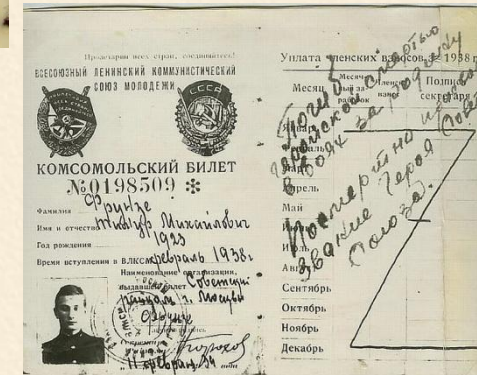 Пролетарии всех стран, соединяйтесь!
ВСЕСОЮЗНЫЙ ЛЕНИНСКИЙ КОММУНИСТИЧЕСКИЙ
СОЮЗ МОЛОДЕЖИ
СССР
КОМСОМОЛЬСКИЙ БИЛЕТ
№0198509
Фамилия Фрунзе
Имя и отчество Тимур Михайлович
Год рождения 1923
Время вступления в ВЛКСМ февраль 1938г
Наименование организации,
выдавшей билет Советский
райком г. Москвы
Фрунзе
подпись
Горохов
Уплата членских взносов за 1938 г
Месяц
Месячный заработок
Членский взнос
Подпись секретаря
Январь
Февраль
Март
Апрель
Май
Июнь
Июль
Август
Сентябрь
Октябрь
Ноябрь
Декабрь
Погиб
геройской смертью
в боях за родину
Посмертно присвоено
звание Героя Советского
Союза.